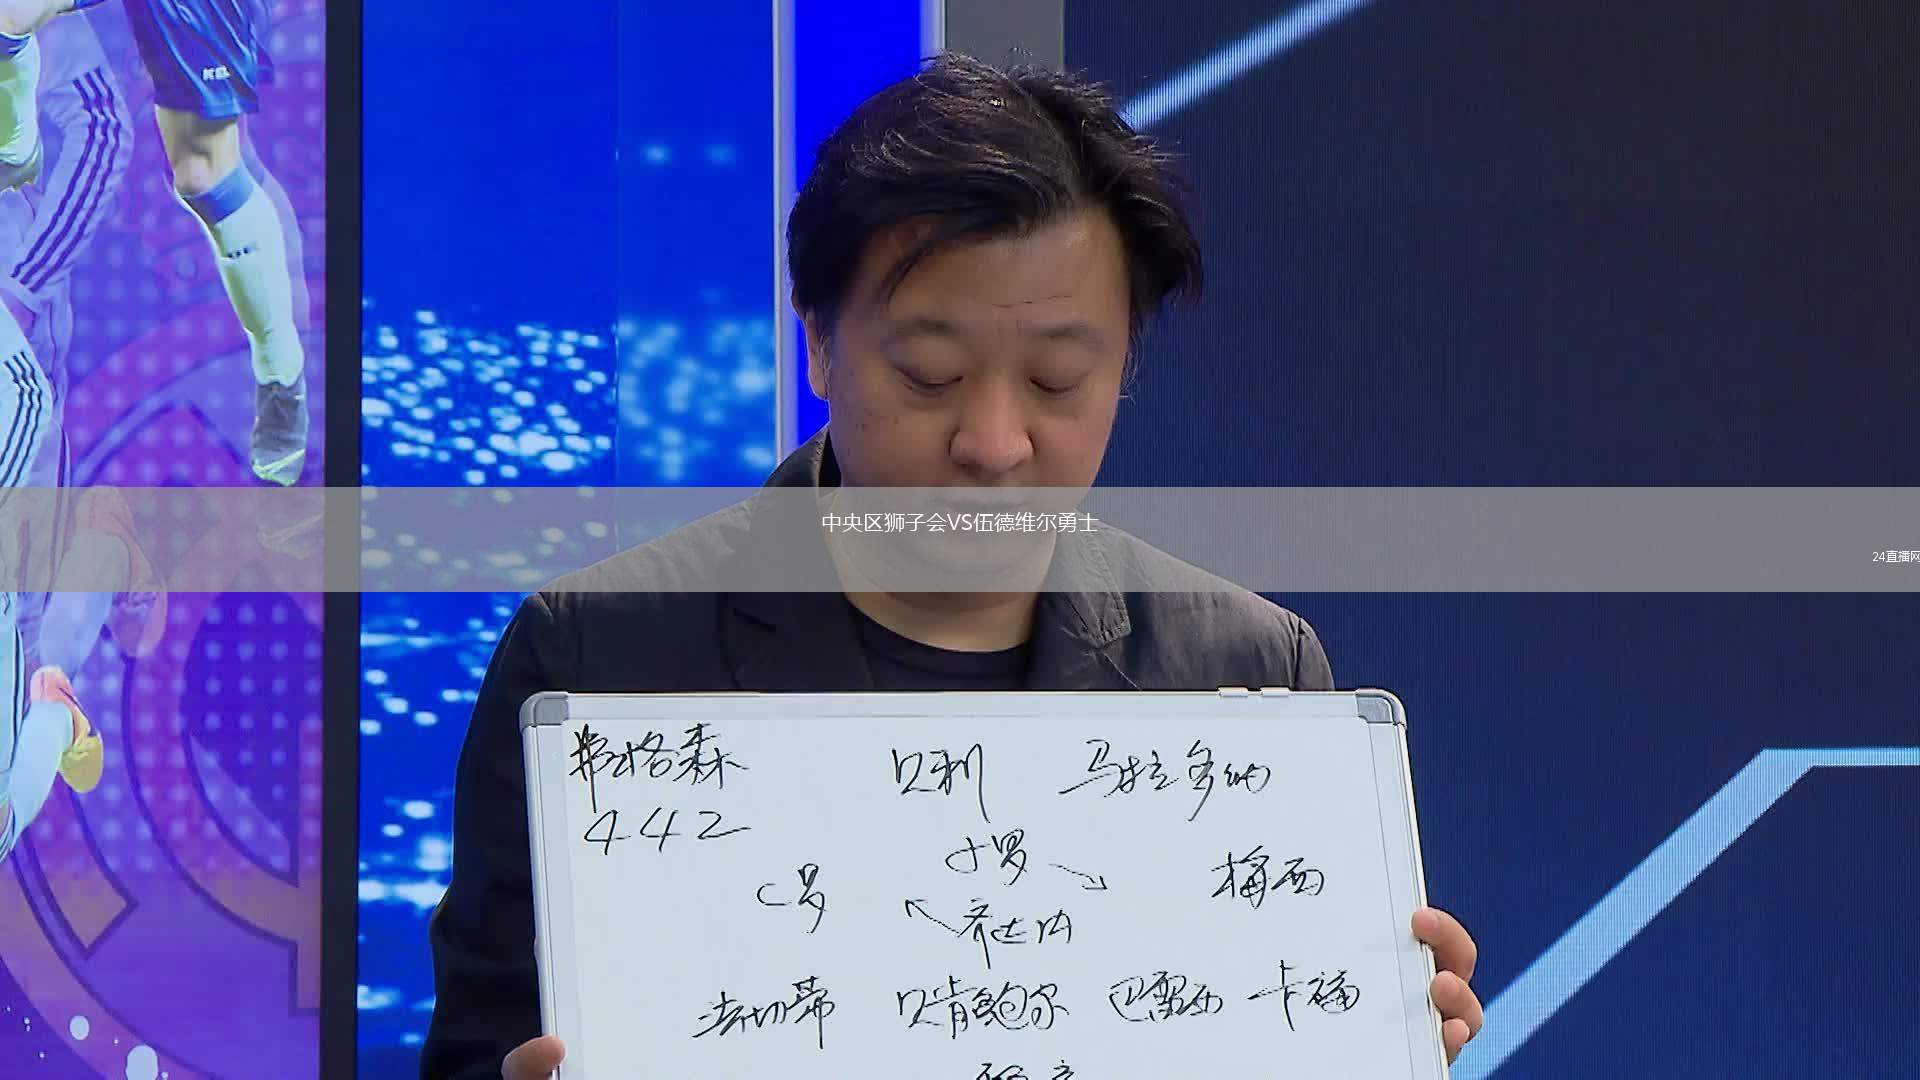 中央区狮子会VS伍德维尔勇士
24直播网
弗格森 贝利 马拉多纳
442
小罗
C罗 梅西
齐达内
法切蒂 贝肯鲍尔 巴雷西 卡福